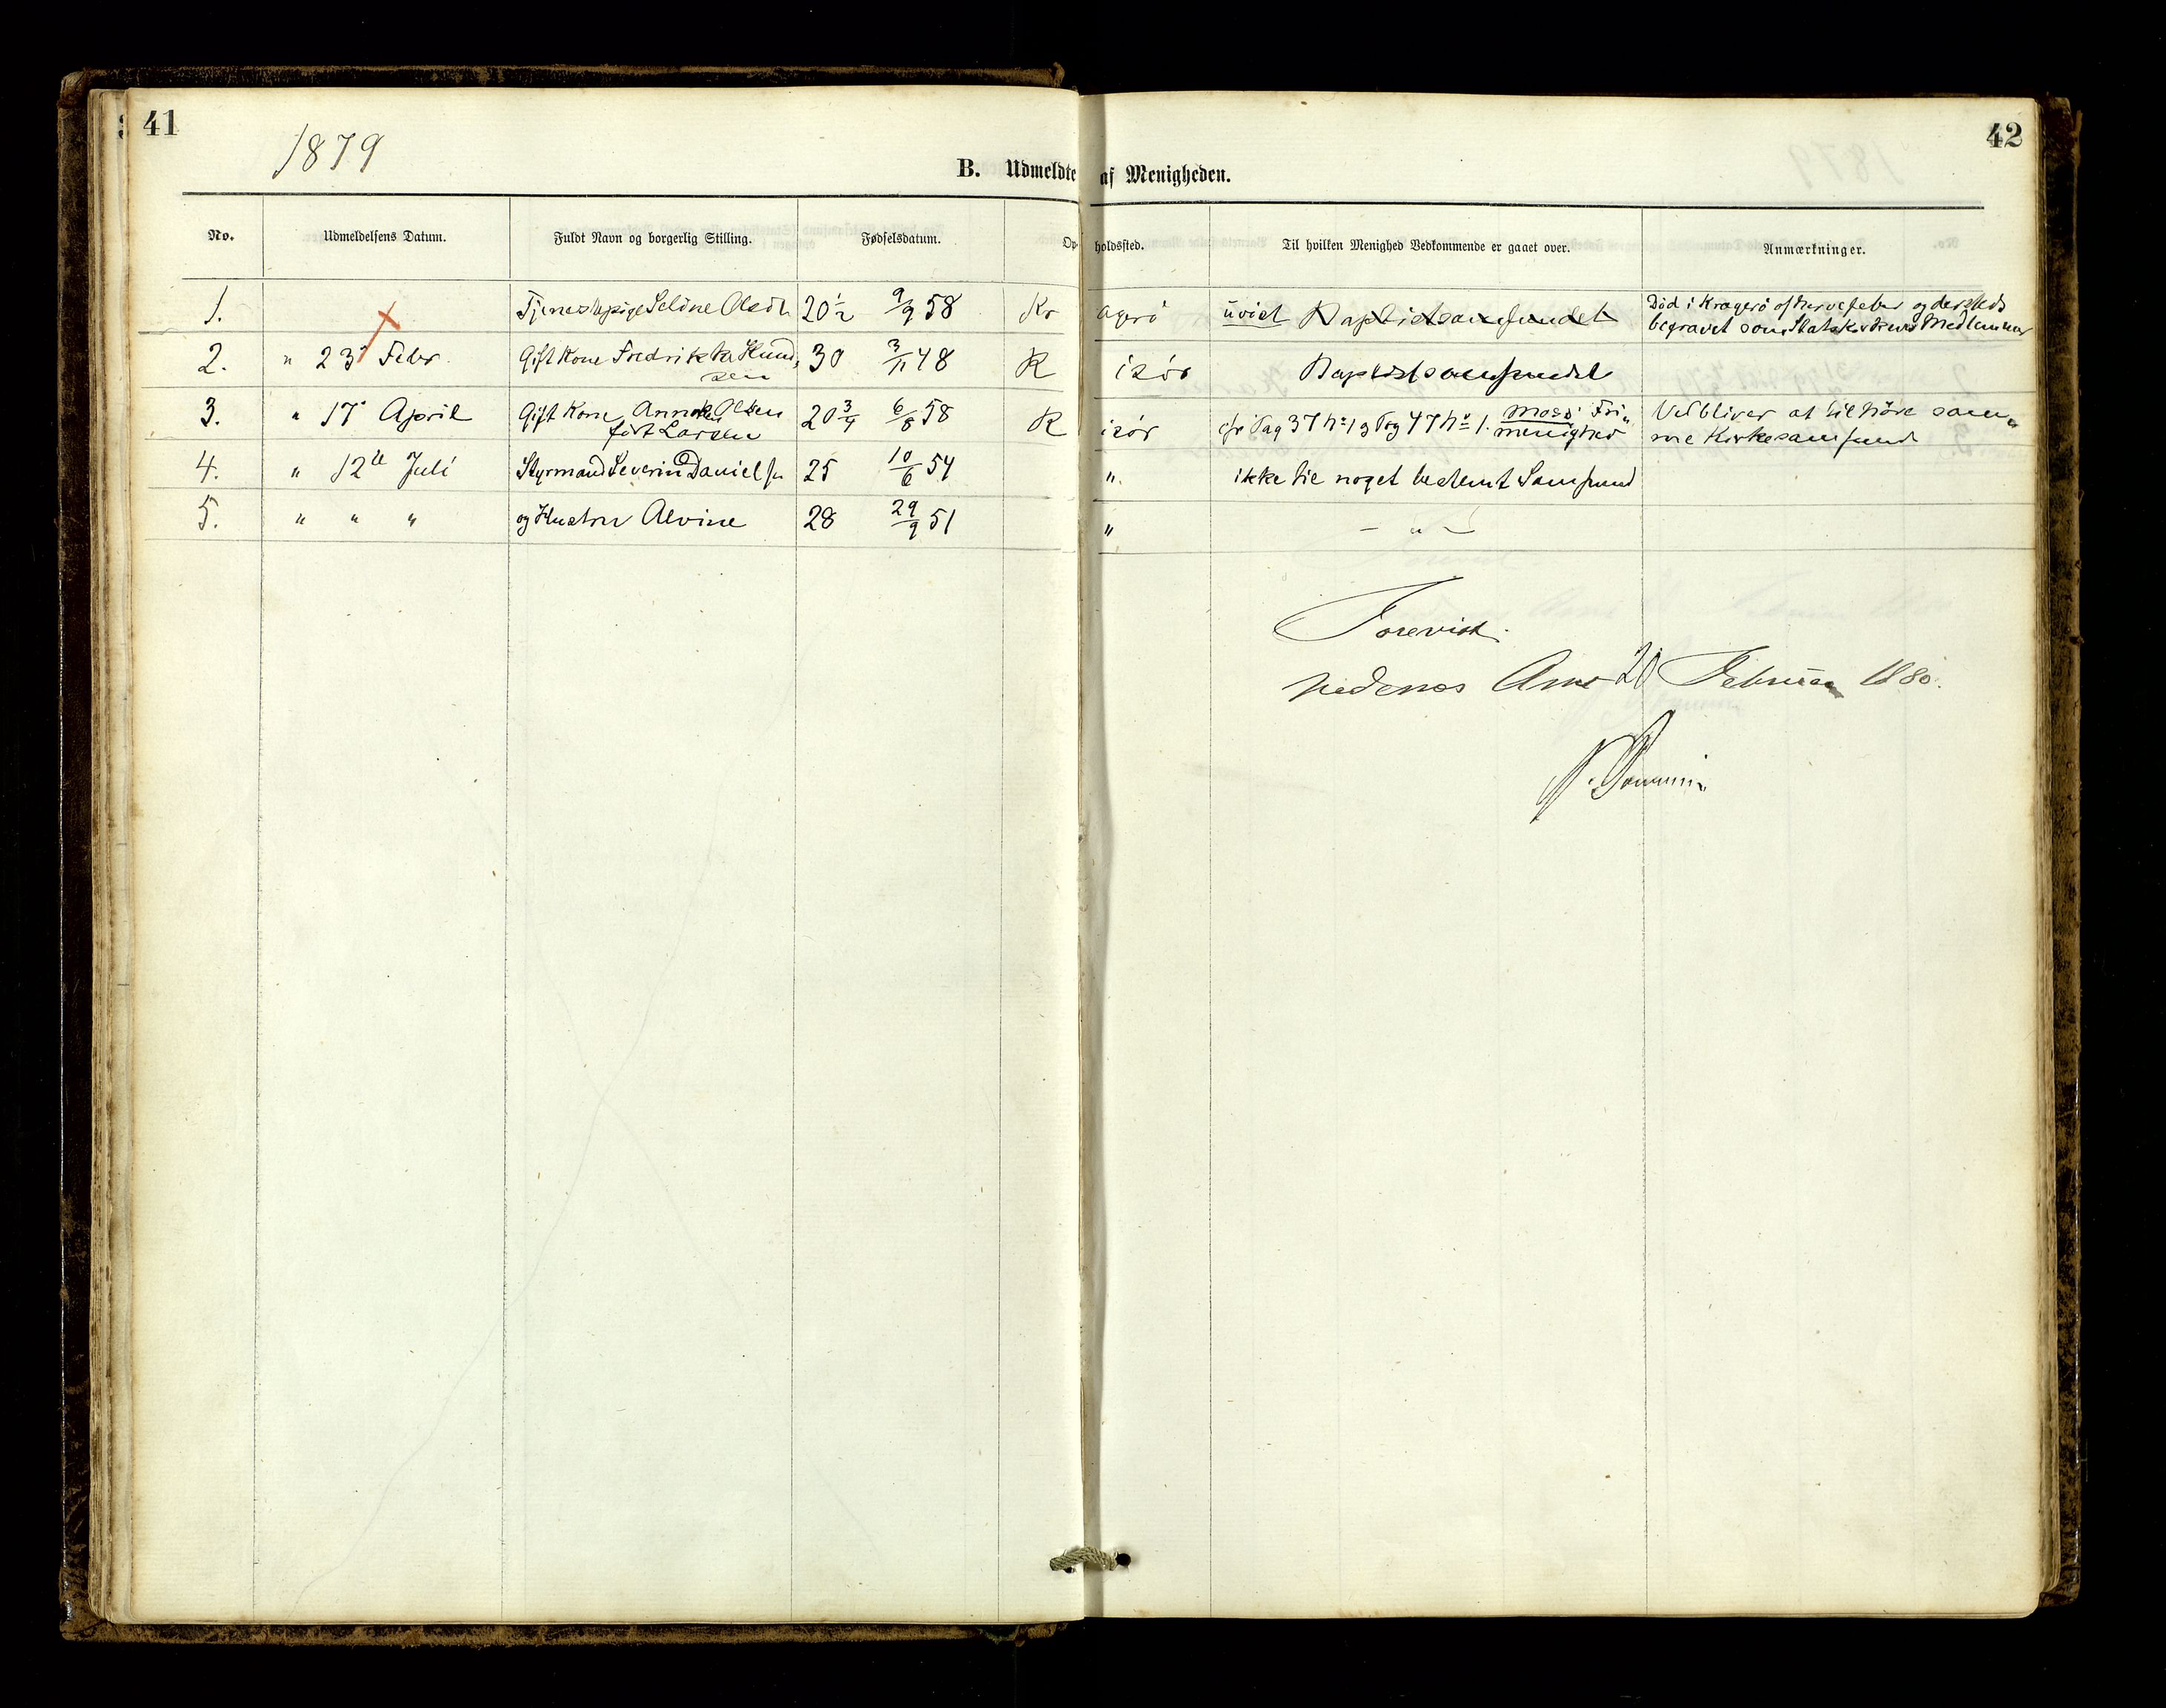 41
42
1879
B. Udmeldte af Menigheden.
No. Udmeldelsens Datum. Fuldt Navn og borgerlig Stilling. Fødselsdatum. Opholdssted. Til hvilken Menighed Vedkommende er gaaet over. Anmærkninger.
1. Tjenestepige Olsdtr 20 1/2 9/9 58 Kragerö uvist Baptistsamfundet Död i Kragerö af Nervefeber og dersteds
begravet som Statskirkens Medlemmer
2. " 23de Febr. Gift Kone Fredrikka Knud,
sen 30 3/11 48 Risör Baptistsamfundet
3. " 17de April Gift Kone Anna Olsen
født Larsen 20 3/4 6/8 58 Risör cfr Pag 37 No 1 og Pag 47 No 1. Moss' Fri"
menighed Vedbliver at tilhöre sam"
me Kirkesamfund
4. " 12te Juli Styrmand Severin Danielsen 25 10/6 54 " ikke til noget bestemt Samfund
5. " " " og Hustru Alvine 28 29/9 51 " — " —
Forevist.
Nedenes Amt 20 Februar 1880.